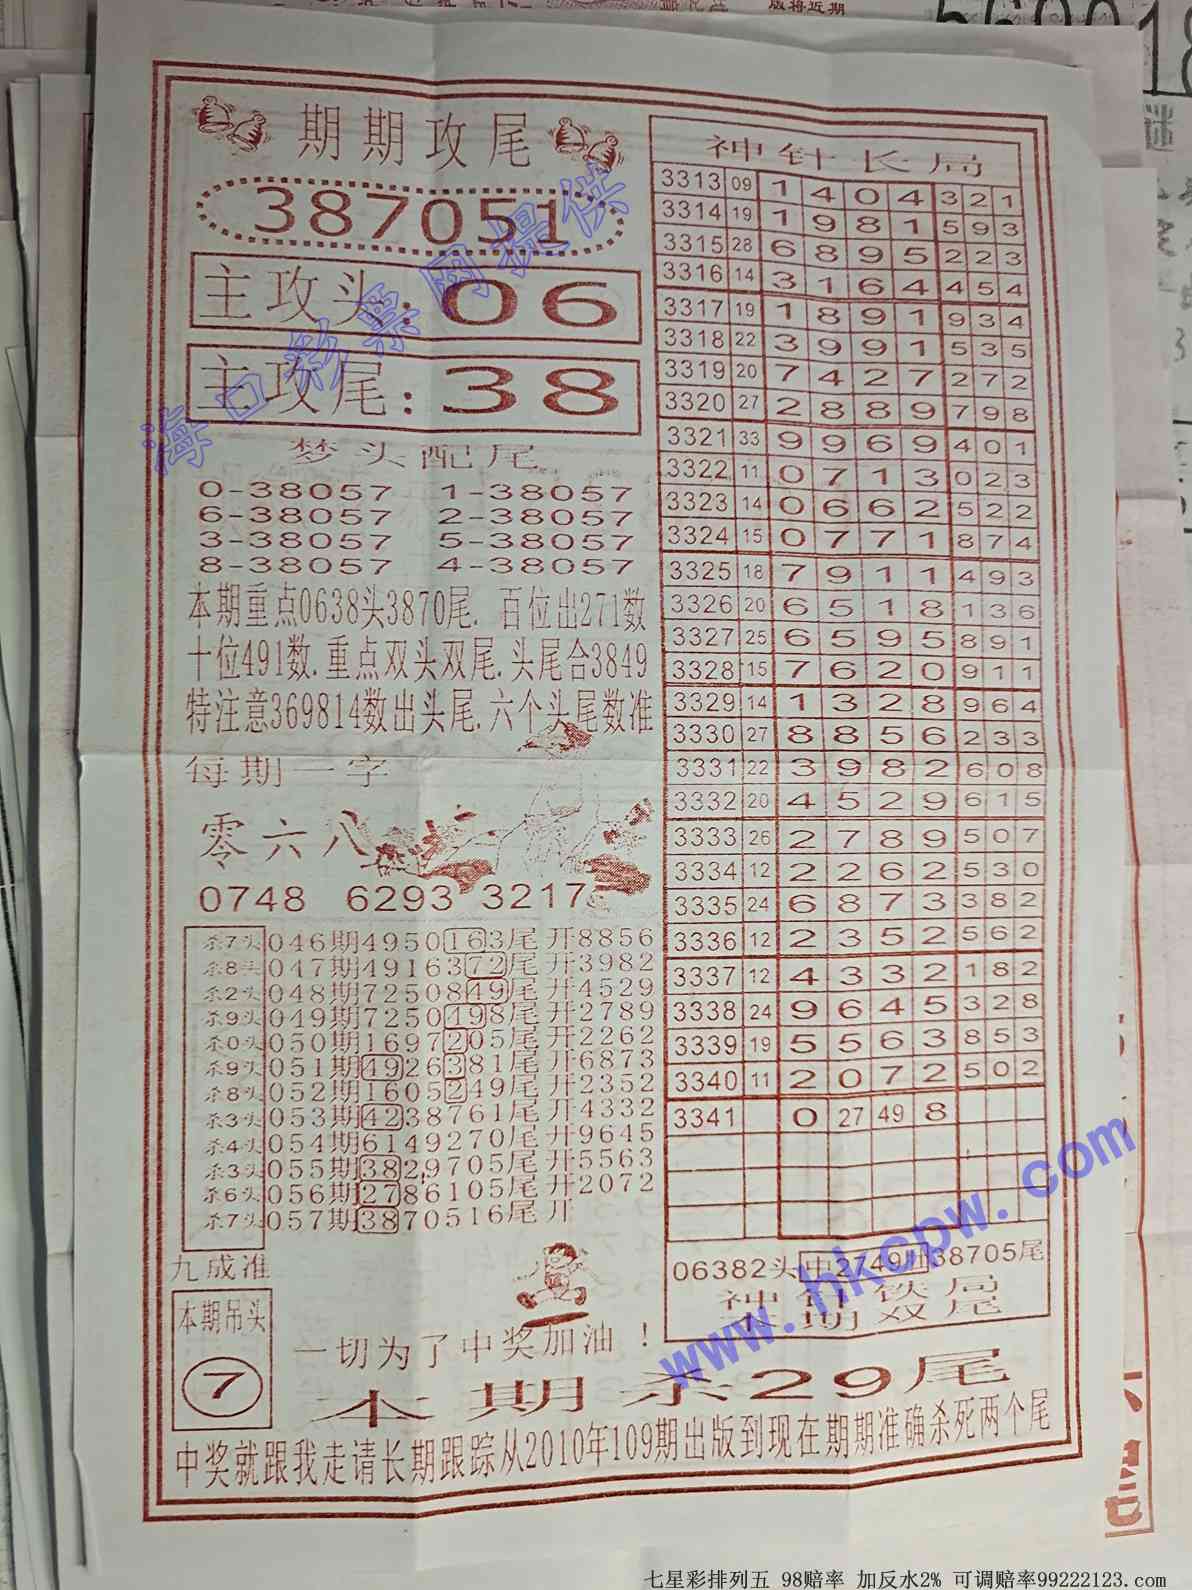 期期攻尾
387051
主攻头:06
主攻尾:38
梦头配尾
0-38057 1-38057
6-38057 2-38057
3-38057 5-38057
8-38057 4-38057
本期重点0638头3870尾. 百位出271数
十位491数.重点双头双尾.头尾合3849
特注意369814数出头尾.六个头尾数准
每期一字
零六八
0748 6293 3217
杀7头 046期4950163尾开8856
杀8头 047期4916372尾开3982
杀2头 048期7250849尾开4529
杀9头 049期7250498尾开2789
杀0头 050期1697205尾开2262
杀9头 051期4926381尾开6873
杀8头 052期1605249尾开2352
杀3头 053期4238761尾开4332
杀4头 054期6149270尾开9645
杀3头 055期3829705尾开5563
杀6头 056期2786105尾开2072
杀7头 057期3870516尾开
九成准
本期吊头
7
一切为了中奖加油！
神针长局
3313 09 1 4 0 4 3 2 1
3314 19 1 9 8 1 5 9 3
3315 28 6 8 9 5 2 2 3
3316 14 3 1 6 4 4 5 4
3317 19 1 8 9 1 9 3 4
3318 22 3 9 9 1 5 3 5
3319 20 7 4 2 7 2 7 2
3320 27 2 8 8 9 7 9 8
3321 33 9 9 6 9 4 0 1
3322 11 0 7 1 3 0 2 3
3323 14 0 6 6 2 5 2 2
3324 15 0 7 7 1 8 7 4
3325 18 7 9 1 1 4 9 3
3326 20 6 5 1 8 1 3 6
3327 25 6 5 9 5 8 9 1
3328 15 7 6 2 0 9 1 1
3329 14 1 3 2 8 9 6 4
3330 27 8 8 5 6 2 3 3
3331 22 3 9 8 2 6 0 8
3332 20 4 5 2 9 6 1 5
3333 26 2 7 8 9 5 0 7
3334 12 2 2 6 2 5 3 0
3335 24 6 8 7 3 3 8 2
3336 12 2 3 5 2 5 6 2
3337 12 4 3 3 2 1 8 2
3338 24 9 6 4 5 3 2 8
3339 19 5 5 6 3 8 5 3
3340 11 2 0 7 2 5 0 2
3341 0 27 49 8
06382头中2749肚38705尾
神针铁局
本期双尾
本期杀29尾
中奖就跟我走请长期跟踪从2010年109期出版到现在期期准确杀死两个尾
海口彩票网提供
www.hkcpw.com
七星彩排列五 98赔率 加反水2% 可调赔率99222123.com